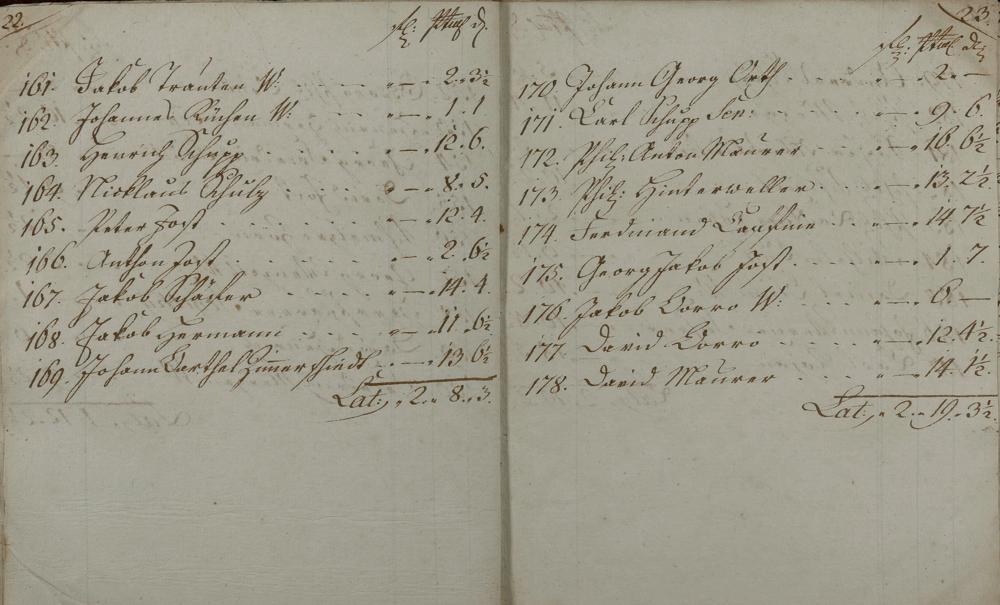 22.
fl:
161. Jakob Tranten W: . . . . „ — „ 2 „ 3½
162. Johannes Küchen W: . . . „ — „ 1 . 1
163. Henrich Schupp . . . . . „ — „ 12 „ 6.
164. Nicklaus Schulz . . . . — „ 8 „ 5.
165. Peter Jost . . . . . . „ — „ 12 „ 4.
166. Anthon Jost . . . . . „ — „ 2 „ 6½
167. Jakob Schäffer . . . . . — „ 14 „ 4.
168. Jakob Hermann . . . . „ — „ 11 „ 6½
169. Johann Barthel Zimmerschiedt . . — „ 13 „ 6½
Lat: „ 2 „ 8 „ 3.
23.
fl:
170. Johann Georg Orth . . . . „ — „ 2. „ —
171. Karl Schupp Sen: . . . . „ — „ 9 „ 6.
172. Phil: Anton Maurer . . . „ — „ 16. 6½
173. Phil: Hinterweller . . . „ — „ 13. 2½
174. Ferdinand . . „ — „ 14. 7½
175. Georg Jakob Jost . . . . „ — „ 1 „ 7.
176. Jakob Corro W: . . . . „ — „ 6. —
177. David Corro . . . . . „ — „ 12. 4½
178. David Maurer . . . . „ — „ 14. 1½.
Lat: „ 2 „ 19 „ 3½